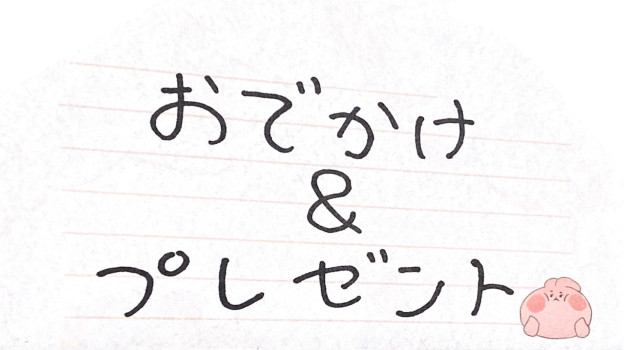 おでかけ
&
プレゼント